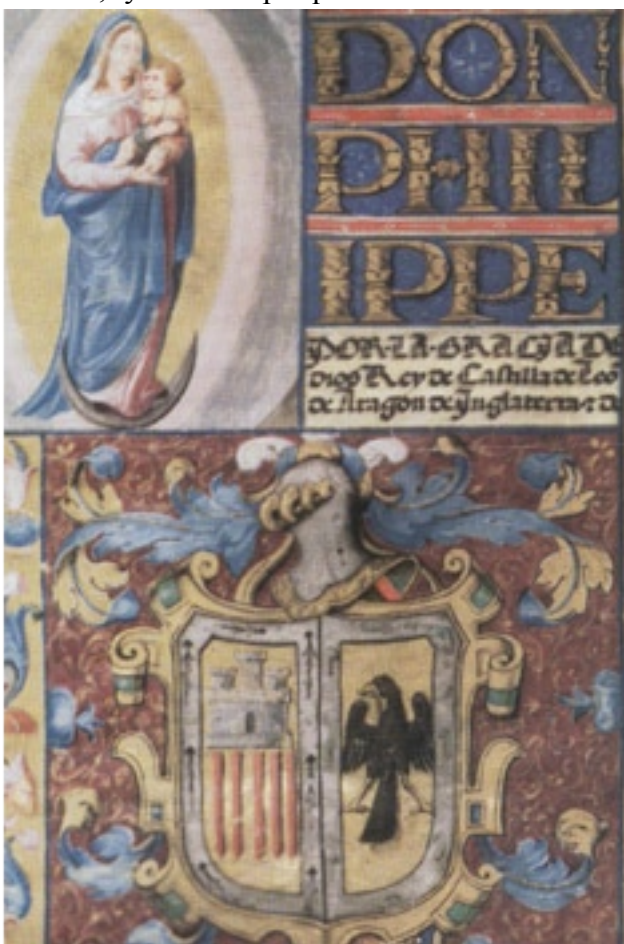 DON
PHIL
IPPE
POR·LA·GRACIA DE
Dios Rey de Castilla de Leo
de Aragon de Inglaterra